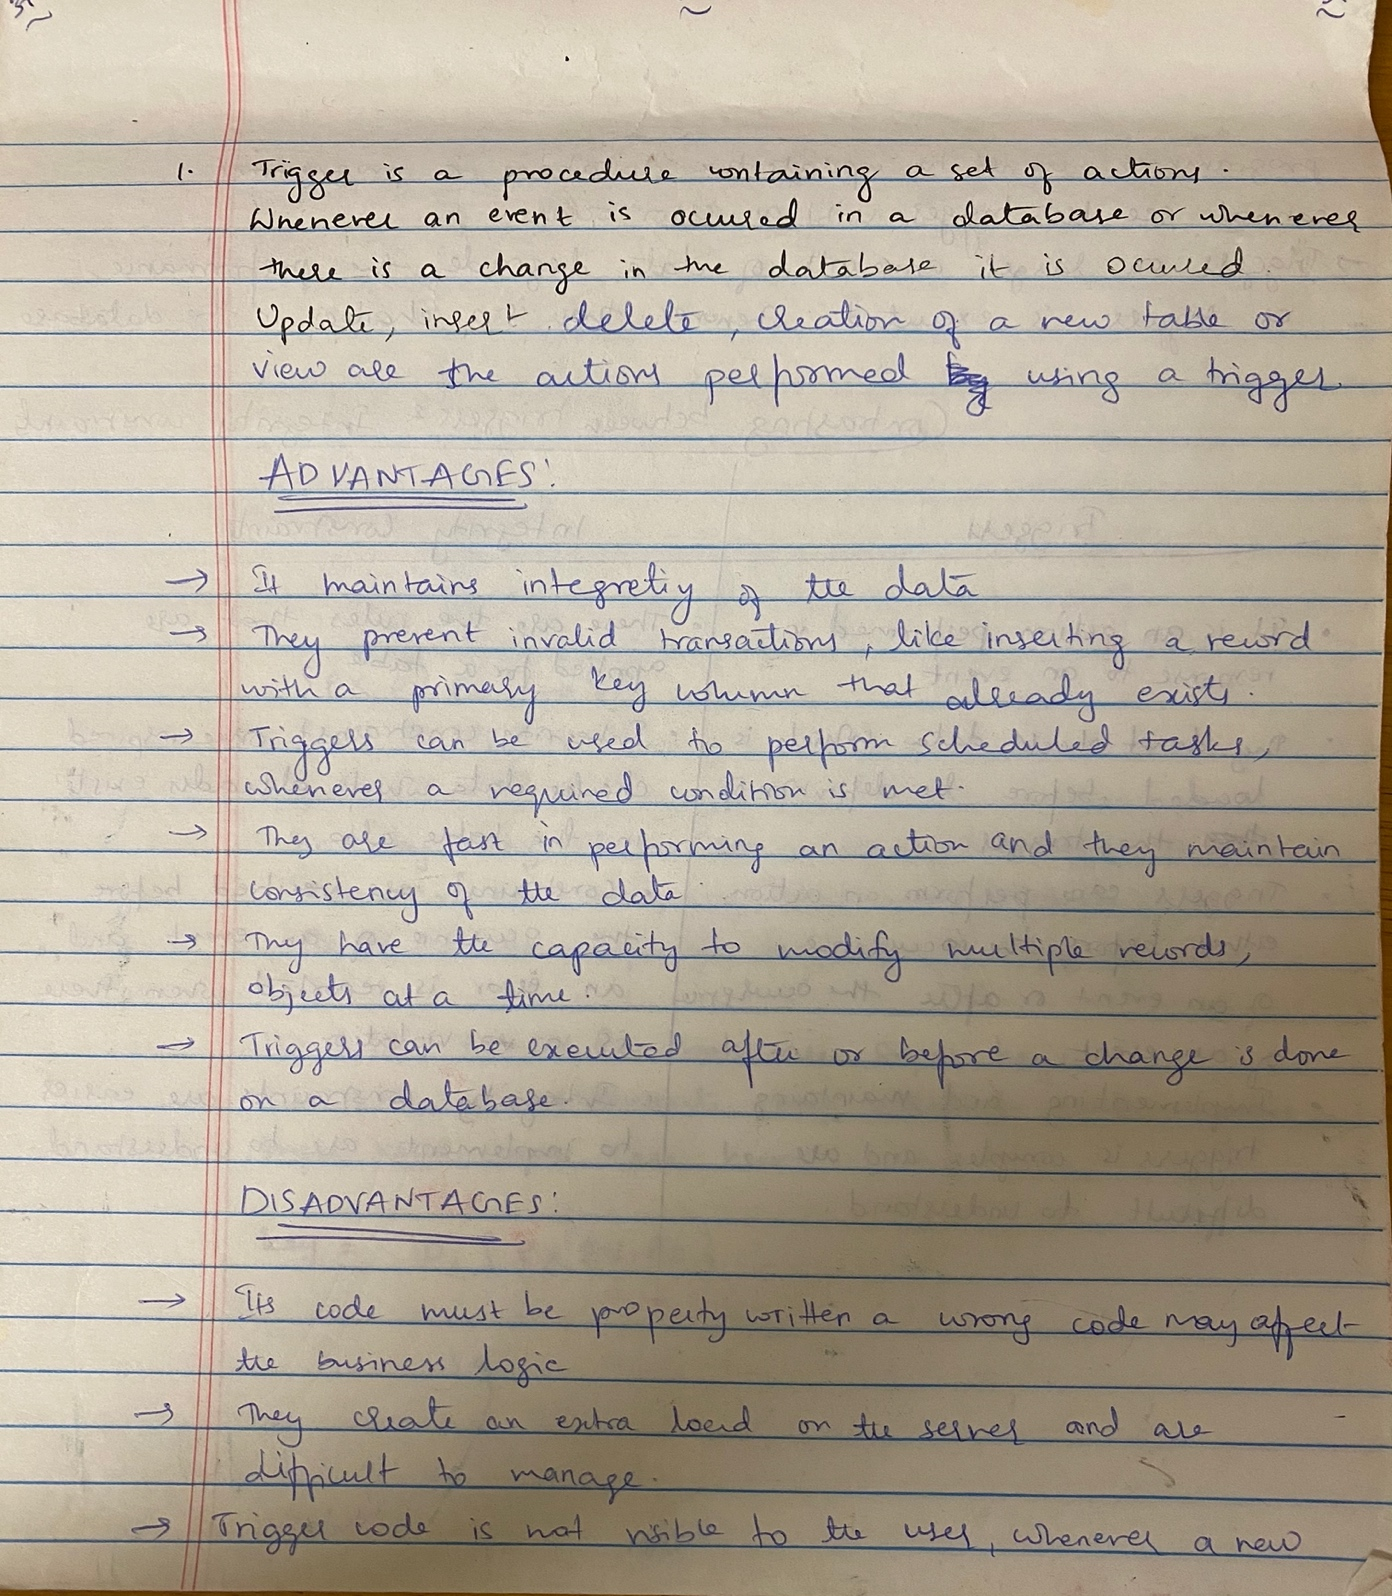 1. Trigger is a procedure containing a set of actions.
Whenever an event is occured in a database or whenever
there is a change in the database it is occured.
Update, insert delete, creation of a new table or
view are the actions performed using a trigger.
ADVANTAGES:
→ It maintains integretiy of the data
→ They prevent invalid transactions, like inserting a record
with a primary key column that already exists.
→ Triggers can be used to perform scheduled tasks,
whenever a required condition is met.
→ They are fast in performing an action and they maintain
consistency of the data.
→ They have the capacity to modify multiple records,
objects at a time.
→ Triggers can be executed after or before a change is done
on a database.
DISADVANTAGES:
→ Its code must be properly written a wrong code may affect
the business logic
→ They create an extra load on the server and are
difficult to manage.
→ Trigger code is not visible to the user, whenever a new